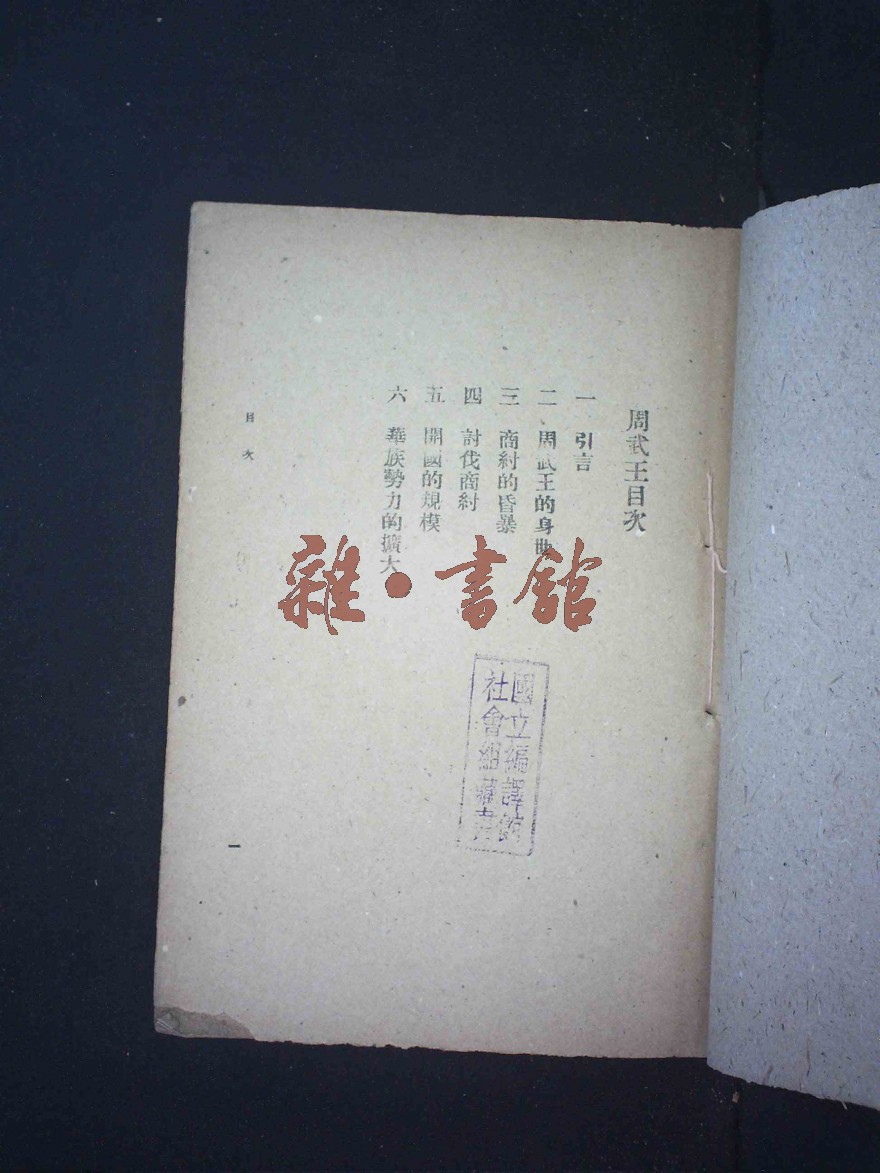 周武王目次
一 引言
二 周武王的身世
三 商紂的昏暴
四 討伐商紂
五 開國的規模
六 華族勢力的擴大
目次
一
雜·書館
國立編譯館
社會組藏書